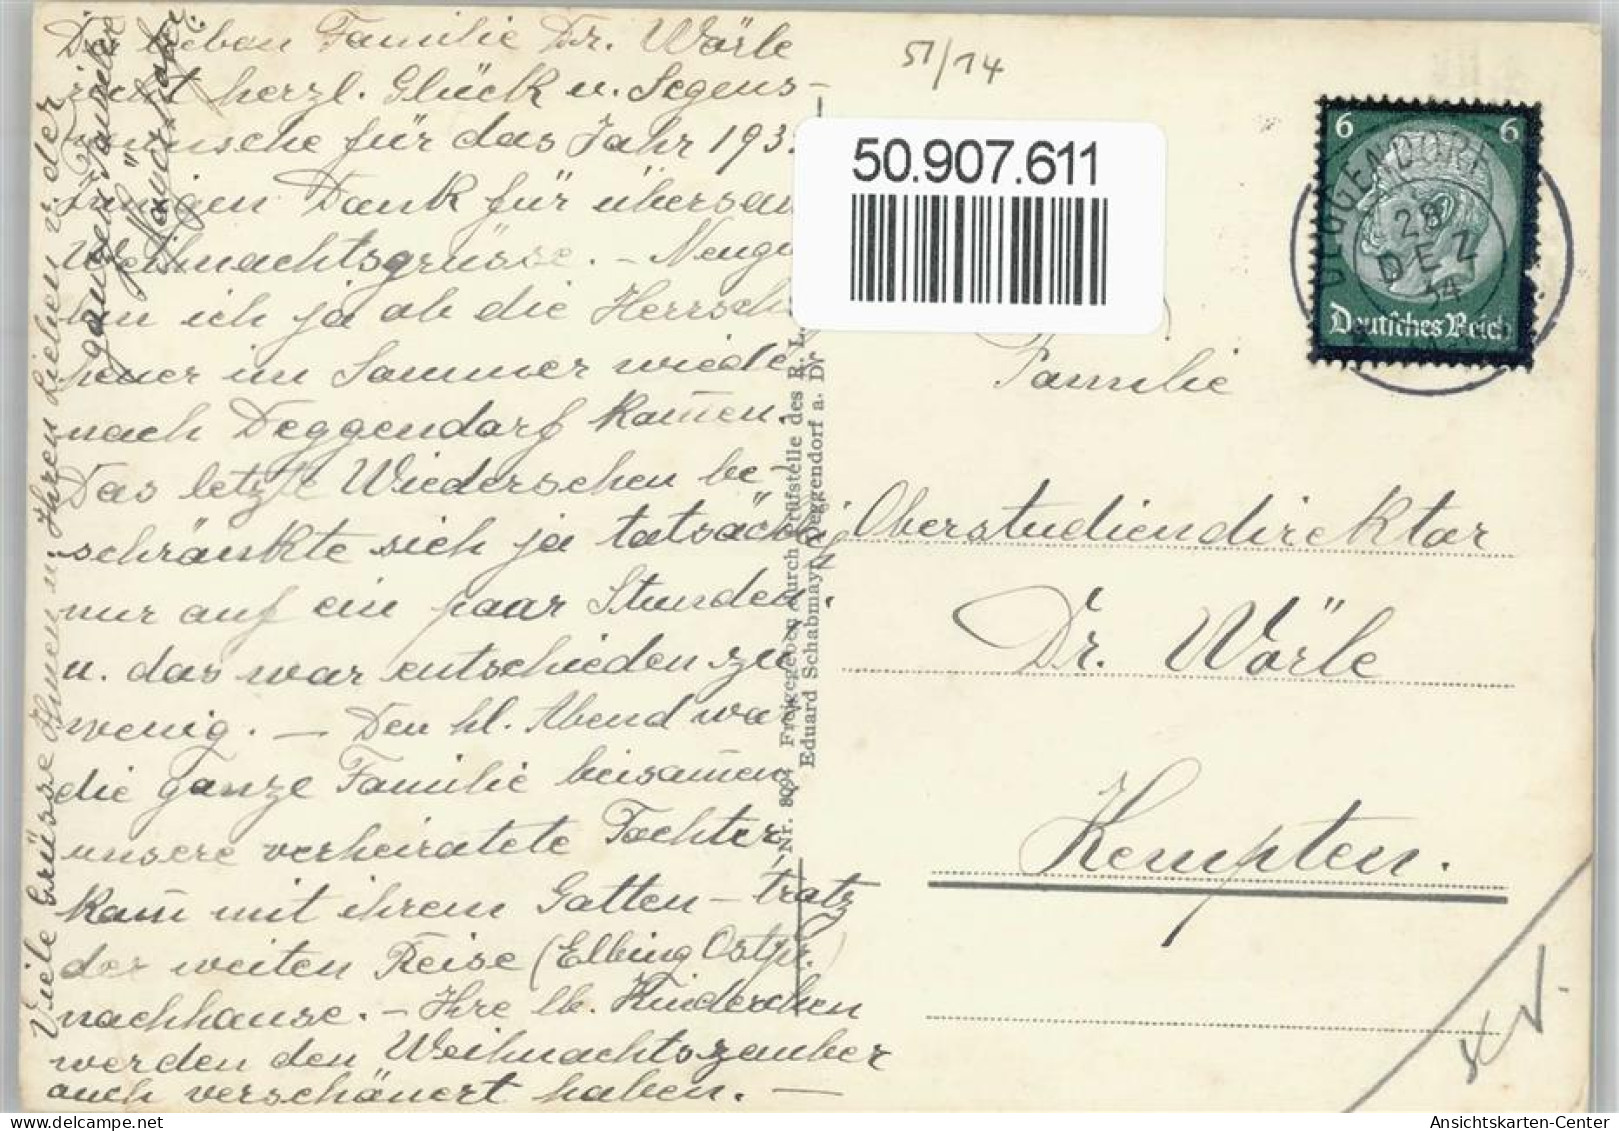 Der lieben Familie Dr. Wörle
herzl. Glück u. Segens-
wünsche für das Jahr 193
innigen Dank für übersan
Weihnachtsgrüsse. - Neugi
ich ja ob die Herrsch
heuer im Sommer wieder
nach Deggendorf kom̄en.
Das letzte Wiedersehen be-
schränkte sich ja tatsächlich
nur auf ein paar Stunden,
u. das war entschieden zu
wenig. — Den hl. Abend war
die ganze Familie beisam̄en
unsere verheiratete Tochter
kam̄ mit ihrem Gatten - trotz
der weiten Reise (Elbing Ostpr.)
nachhause. - Ihre lb. Kinderchen
werden den Weihnachtszauber
auch verschönert haben. —
Viele Grüsse Ihnen u. Ihren Lieben v. der
ganzen Familie
51/14
50.907.611
6 6
DEGGENDORF
28
DEZ
34
Deutsches Reich
Nr. 8094 Freigegeben durch Prüfstelle des R. L.
Eduard Schabmayr, Deggendorf a. D.
Familie
Oberstudiendirektor
Dr. Wörle
Kempten.
Ansichtskarten-Center